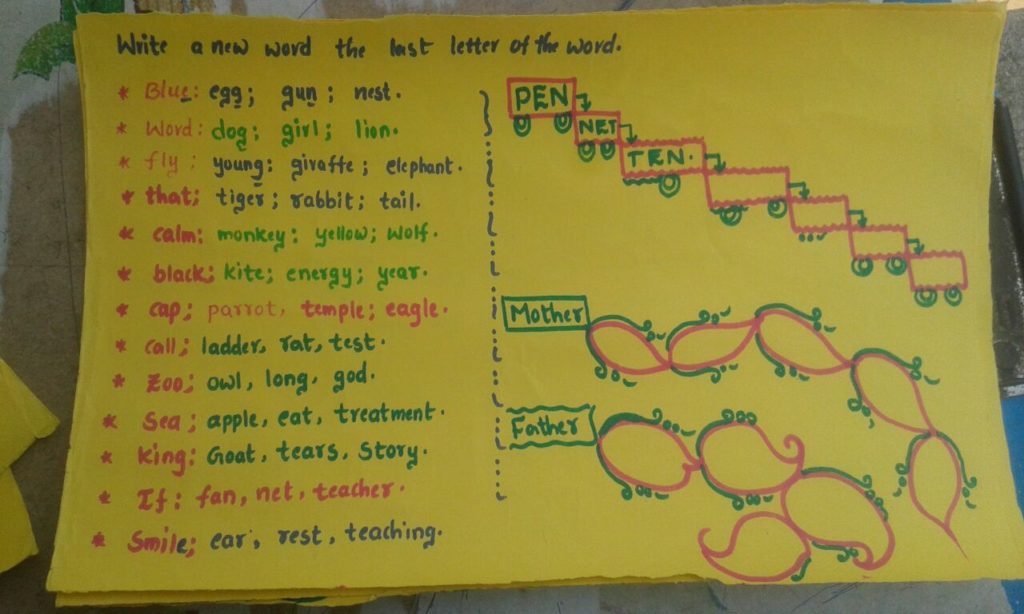 Write a new word the last letter of the word.
* Blue: egg; gun; nest.
* Word: dog; girl; lion.
* fly: young; giraffe; elephant.
* that; tiger; rabbit; tail.
* calm: monkey: yellow; wolf.
* black; kite; energy; year.
* cap; parrot, temple; eagle.
* call; ladder, rat, test.
* Zoo; owl, long, god.
* Sea; apple, eat, treatment.
* King: Goat, tears, Story.
* If: fan, net, teacher.
* Smile; ear, rest, teaching.
PEN
NET
TEN.
Mother
Father